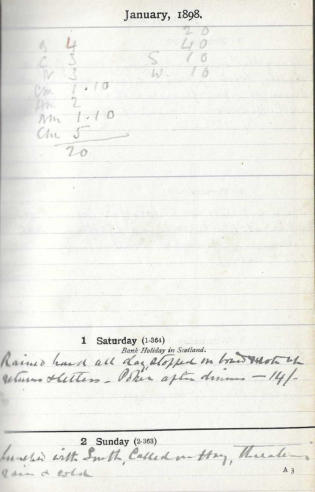 January, 1898.
20
4 40
C 3 S 10
3 W. 10
1.10
2
1.10
5
20
1 Saturday (1-364)
Bank Holiday in Scotland.
Rained hard all day, stopped on board wrote
returns & letters - Poker after dinner - 14/-
2 Sunday (2-363)
Lunched with Smith, Called on Hay,
rain & cold
A 3